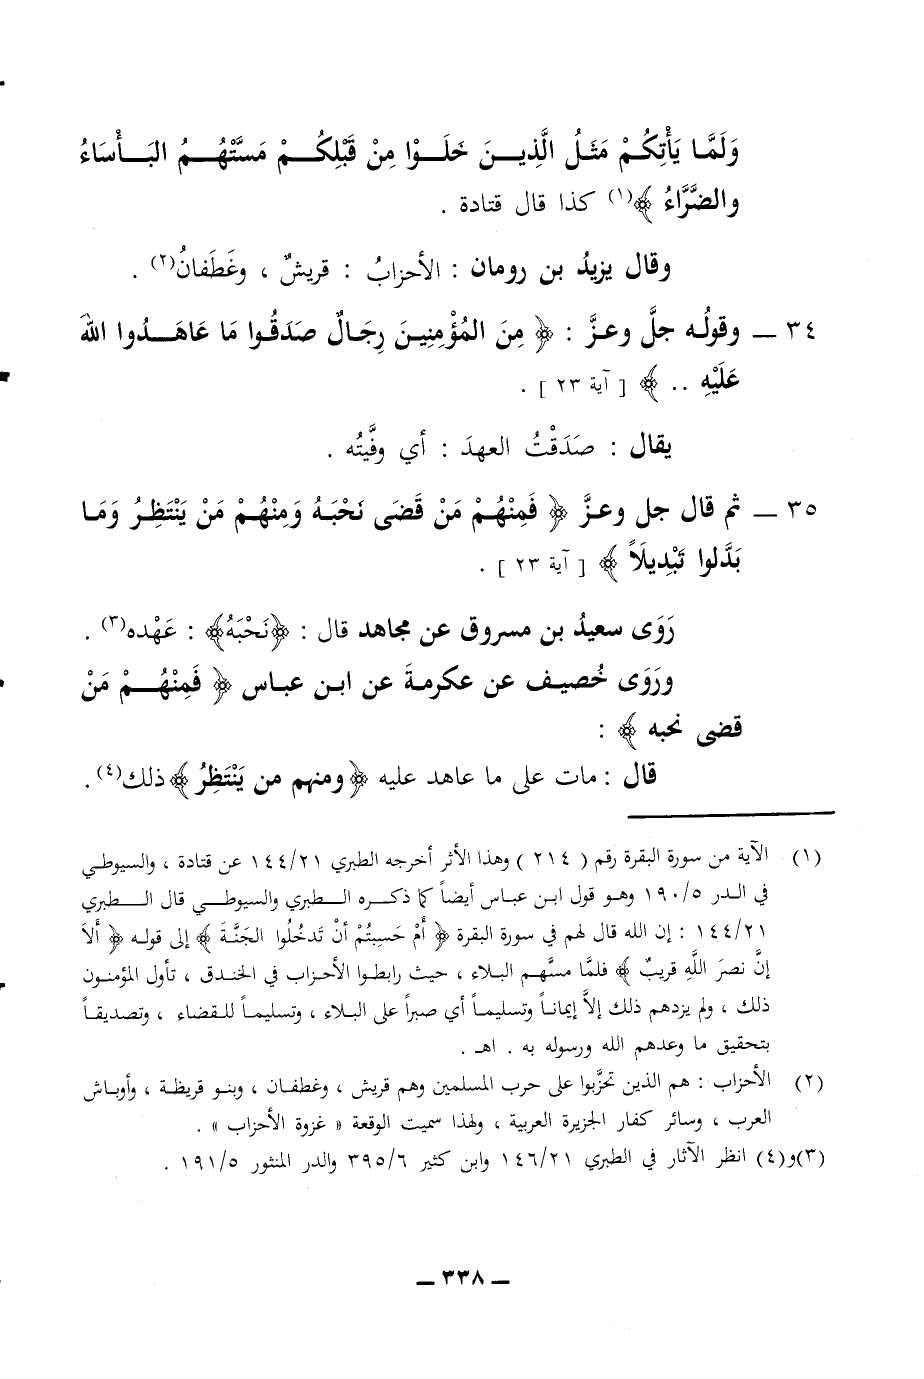 وَلَمَّا يَأْتِكُمْ مَثَلُ الَّذِينَ خَلَوْا مِنْ قَبْلِكُمْ مَسَّتْهُمُ البَأْسَاءُ
والضَّرَّاءُ ﴾(١) كذا قال قتادة .
وقال يزيدُ بن رومان : الأحزابُ : قريشٌ ، وغَطَفانُ(٢) .
٣٤ ــ وقولُه جلَّ وعزَّ : ﴿ مِنَ المُؤْمِنِينَ رِجَالٌ صَدَقُوا مَا عَاهَدُوا اللَّهَ
عَلَيْهِ .. ﴾ [ آية ٢٣ ] .
يقال : صَدَقْتُ العهدَ : أي وفَّيتُه .
٣٥ ــ ثم قال جل وعزَّ ﴿ فَمِنْهُمْ مَنْ قَضَى نَحْبَهُ وَمِنْهُمْ مَنْ يَنْتَظِرُ وَمَا
بَدَّلوا تَبْدِيلَاً ﴾ [ آية ٢٣ ] .
رَوَى سعيدُ بن مسروق عن مجاهد قال : ﴿نَحْبَهُ﴾ : عَهْده(٣) .
ورَوَى خُصيف عن عكرمةَ عن ابن عباس ﴿ فَمِنْهُمْ مَنْ
قضى نحبه ﴾ :
قال : مات على ما عاهد عليه ﴿ومنهم من يَنْتَظِرُ﴾ ذلك(٤) .
(١) الآية من سورة البقرة رقم ( ٢١٤ ) وهذا الأثر أخرجه الطبري ١٤٤/٢١ عن قتادة ، والسيوطي
في الدر ١٩٠/٥ وهو قول ابن عباس أيضاً كما ذكره الطبري والسيوطي قال الطبري
١٤٤/٢١ : إن الله قال لهم في سورة البقرة ﴿ أَمْ حَسِبتُمْ أنْ تَدخُلُوا الجَنَّةَ ﴾ إلى قوله ﴿ أَلاَ
إنَّ نصرَ اللَّهِ قريبٌ ﴾ فلمَّا مسَّهم البلاء ، حيث رابطوا الأحزاب في الخندق ، تأول المؤمنون
ذلك ، ولم يزدهم ذلك إلاَّ إيماناً وتسليماً أي صبراً على البلاء ، وتسليماً للقضاء ، وتصديقاً
بتحقيق ما وعدهم الله ورسوله به . اهـ .
(٢) الأحزاب : هم الذين تحزَّبوا على حرب المسلمين وهم قريش ، وغطفان ، وبنو قريظة ، وأوباش
العرب ، وسائر كفار الجزيرة العربية ، ولهذا سميت الوقعة « غزوة الأحزاب » .
(٣)و(٤) انظر الآثار في الطبري ١٤٦/٢١ وابن كثير ٣٩٥/٦ والدر المنثور ١٩١/٥ .
ــ ٣٣٨ ــ